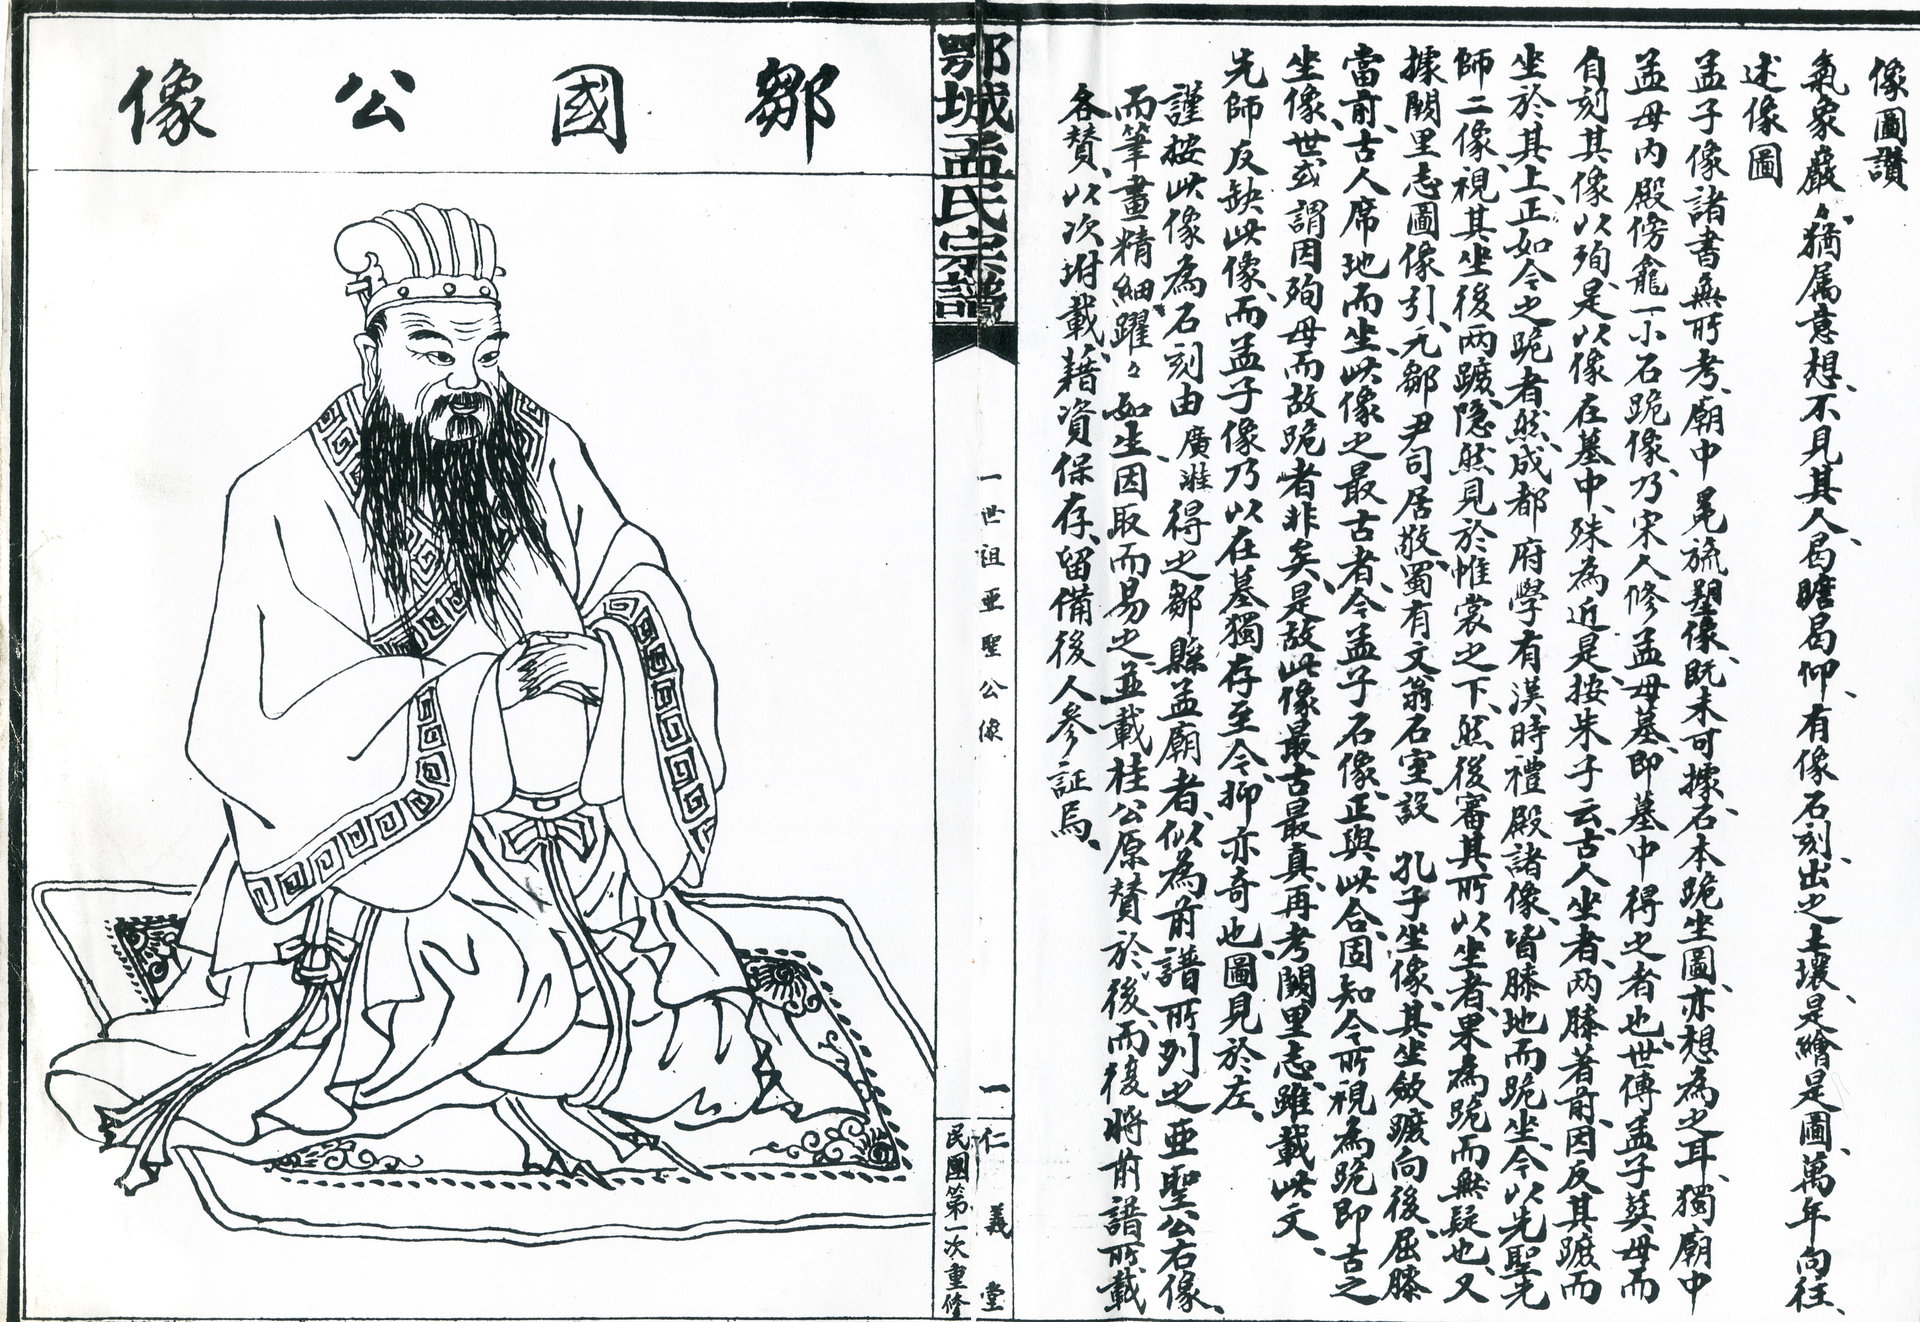 像圖讚
氣象巖々猶属意想、不見其人、曷瞻曷仰、有像石刻、出之土壤、是繪是圖、萬年向往、
述像圖
孟子像諸書無所考、廟中冕旒塑像、既未可據、石本跪坐圖、亦想為之耳、獨廟中
孟母內殿傍龕一小石跪像、乃宋人修孟母墓、即墓中得之者也、世傳孟子葬母而
自刻其像以殉、是以像在墓中、殊為近是、按朱子云古人坐者、两膝著前、因反其蹠而
坐於其上、正如今之跪者然、成都府學有漢時禮殿諸像、皆膝地而跪坐、今以先聖先
師二像、視其坐後两蹠、隐然見於帷裳之下、然後審其所以坐者、果為跪而無疑也、又
據闕里志圖像引、元鄒尹司居敬、蜀有文翁石室、設 孔子坐像、其坐斂蹠向後、屈膝
當前、古人席地而坐、此像之最古者、今孟子石像、正與此合、固知今所視為跪即古之
坐像、世或謂因殉母而故跪者非矣、是故此像最古最真、再考闕里志、雖載此文、
先師反缺此像、而孟子像乃以在墓獨存至今、抑亦奇也、圖見於左、
謹按此像為石刻由 廣漄 得之鄒縣孟廟者、似為前譜所列之亞聖公右像、
而筆畫精細、躍々如生、因取而易之、並載桂公原贊於後、而後將前譜所載
各贊、以次坿載、藉資保存、留備後人參証焉、
鄂城孟氏宗譜
一世祖亞聖公像
一
仁義堂
民國第一次重修
鄒國公像